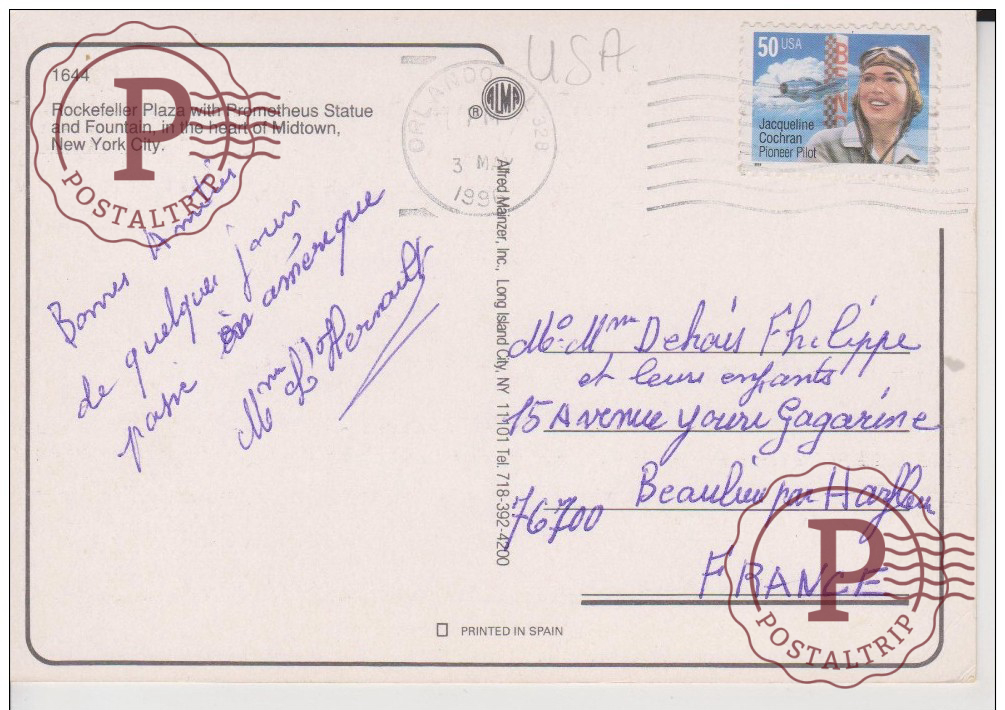 1644
Rockefeller Plaza with Prometheus Statue
and Fountain, in the heart of Midtown,
New York City.
P
POSTALTRIP
Bonnes Amitiés
de quelques jours
passé en amérique
Mme L'Hernault
USA
ORLANDO 328
PM
3 MA
199
ALMA
®
Alfred Mainzer, Inc., Long Island City, NY 11101 Tel. 718-392-4200
50 USA
Jacqueline
Cochran
Pioneer Pilot
Mr Mme Dehais Philippe
et leurs enfants
15 Avenue Youri Gagarine
Beaulieu par Harfleur
76700
FRANCE
PRINTED IN SPAIN
P
POSTALTRIP